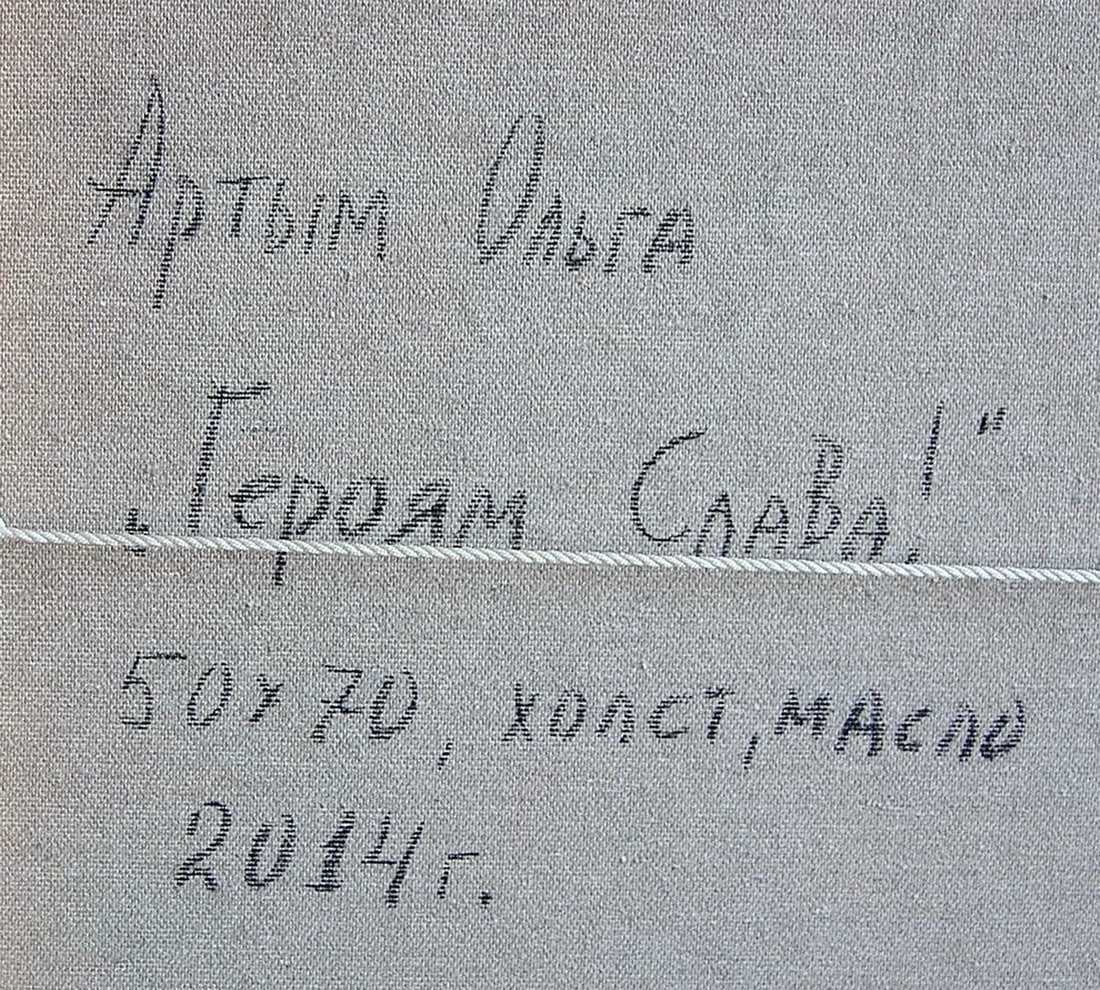 Артым Ольга
„Героям Слава!"
50х70, холст, масло
2014 г.